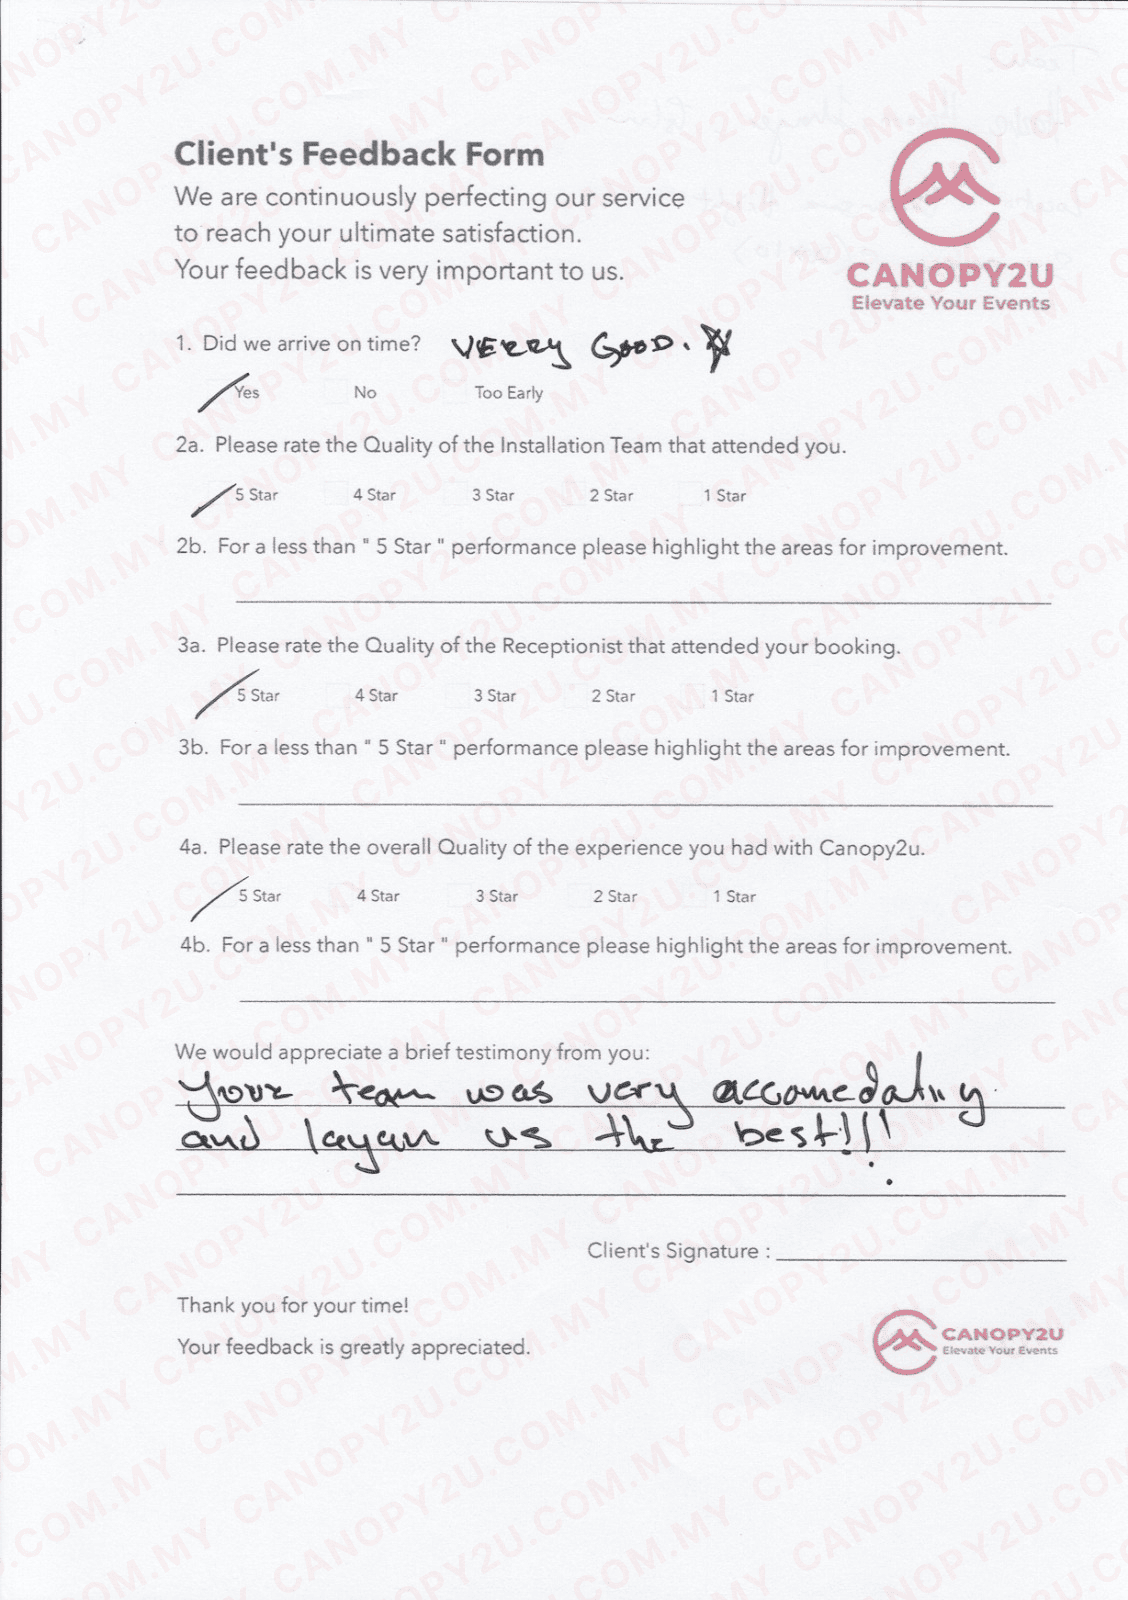 Client's Feedback Form
We are continuously perfecting our service
to reach your ultimate satisfaction.
Your feedback is very important to us.
CANOPY2U
Elevate Your Events
1. Did we arrive on time? VERRY GOOD.
Yes No Too Early
2a. Please rate the Quality of the Installation Team that attended you.
5 Star 4 Star 3 Star 2 Star 1 Star
2b. For a less than " 5 Star " performance please highlight the areas for improvement.
3a. Please rate the Quality of the Receptionist that attended your booking.
5 Star 4 Star 3 Star 2 Star 1 Star
3b. For a less than " 5 Star " performance please highlight the areas for improvement.
4a. Please rate the overall Quality of the experience you had with Canopy2u.
5 Star 4 Star 3 Star 2 Star 1 Star
4b. For a less than " 5 Star " performance please highlight the areas for improvement.
We would appreciate a brief testimony from you:
Your team was very accomedating
and layan us the best!!!
Client's Signature :
Thank you for your time!
Your feedback is greatly appreciated.
CANOPY2U
Elevate Your Events
CANOPY2U.COM.MY